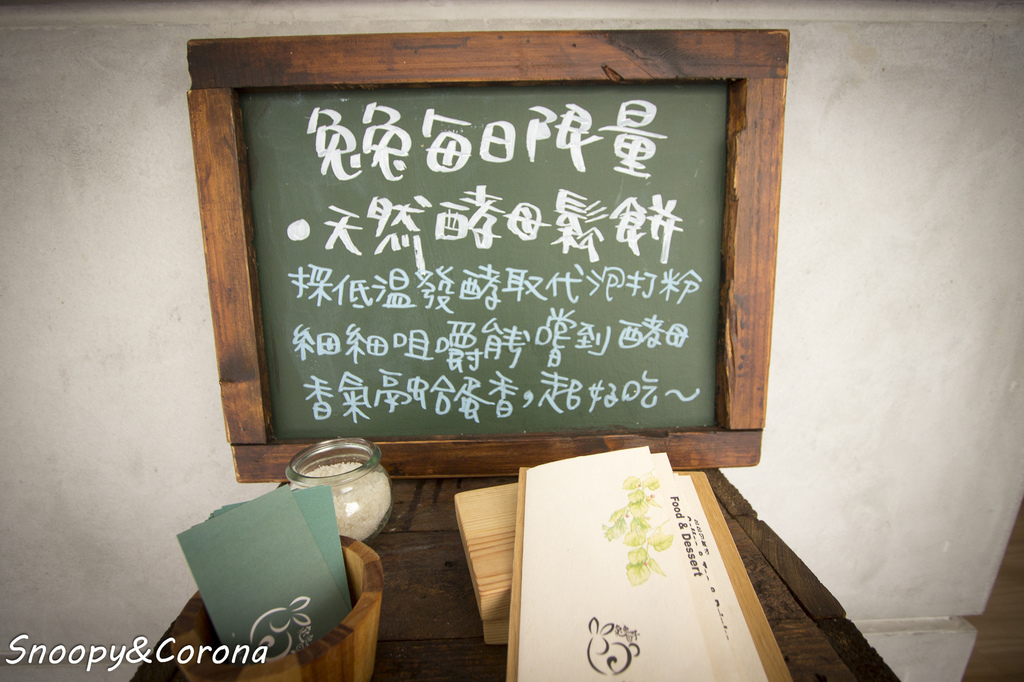 兔兔每日限量
•天然酵母鬆餅
採低溫發酵取代泡打粉
細細咀嚼能嚐到酵母
香氣融合蛋香，起好吃～
Food & Dessert
Snoopy&Corona